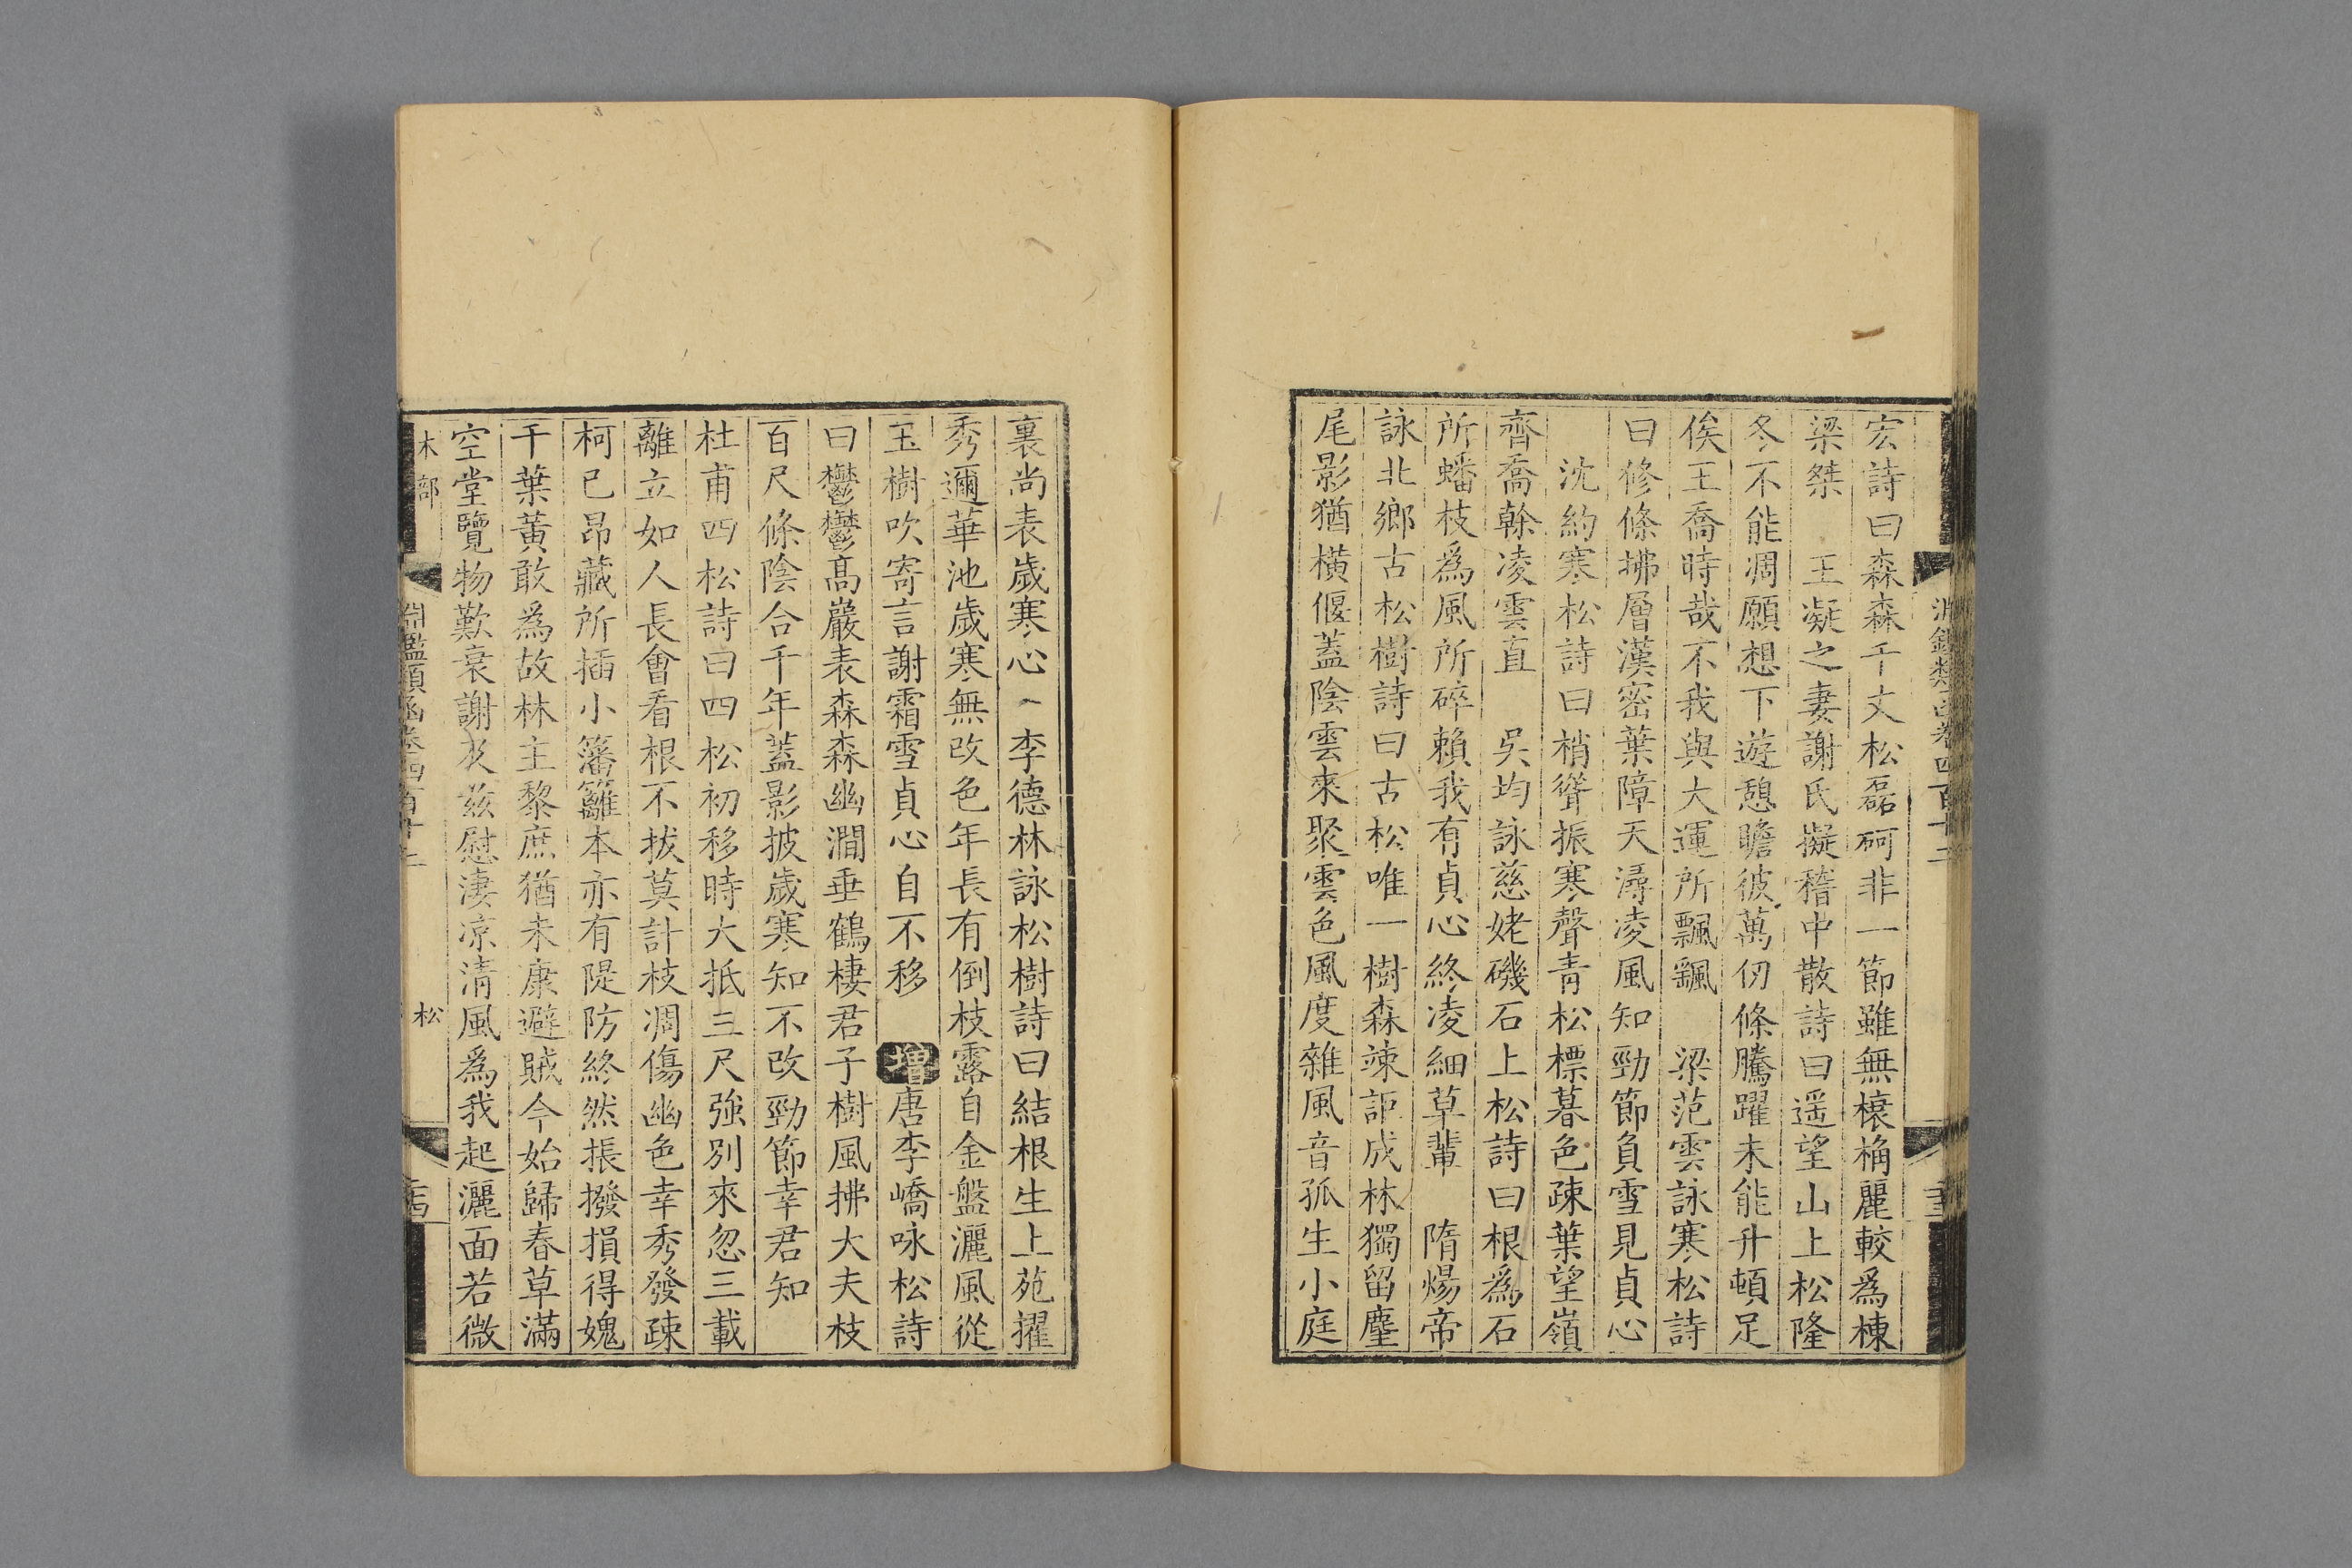 宏詩曰森森千丈松磊砢非一節雖無榱桷麗較爲棟
梁桀　王凝之妻謝氏擬稽中散詩曰遥望山上松隆
冬不能凋願想下遊憩瞻彼萬仞條騰躍未能升頓足
俟王喬時哉不我與大運所飄颻　梁范雲詠寒松詩
曰修條拂層漢密葉障天潯凌風知勁節負雪見貞心
沈約寒松詩曰梢聳振寒聲青松標暮色疎葉望嶺
齊喬幹凌雲直　吳均詠慈姥磯石上松詩曰根爲石
所蟠枝爲風所碎賴我有貞心終凌細草輩　隋煬帝
詠北鄉古松樹詩曰古松唯一樹森竦詎成林獨留塵
尾影猶橫偃蓋陰雲來聚雲色風度雜風音孤生小庭
裏尚表歲寒心　李德林詠松樹詩曰結根生上苑擢
秀邇華池歲寒無改色年長有倒枝露自金盤灑風從
玉樹吹寄言謝霜雪貞心自不移　增唐李嶠咏松詩
曰鬱鬱高巖表森森幽澗垂鶴棲君子樹風拂大夫枝
百尺條陰合千年蓋影披歲寒知不改勁節幸君知
杜甫四松詩曰四松初移時大抵三尺強別來忽三載
離立如人長會看根不拔莫計枝凋傷幽色幸秀發疎
柯已昂藏所插小籓籬本亦有隄防終然掁撥損得媿
千葉黃敢爲故林主黎庶猶未康避賊今始歸春草滿
空堂覽物歎衰謝及茲慰淒涼清風爲我起灑面若微
木部
淵鑑類函卷四百十二
松